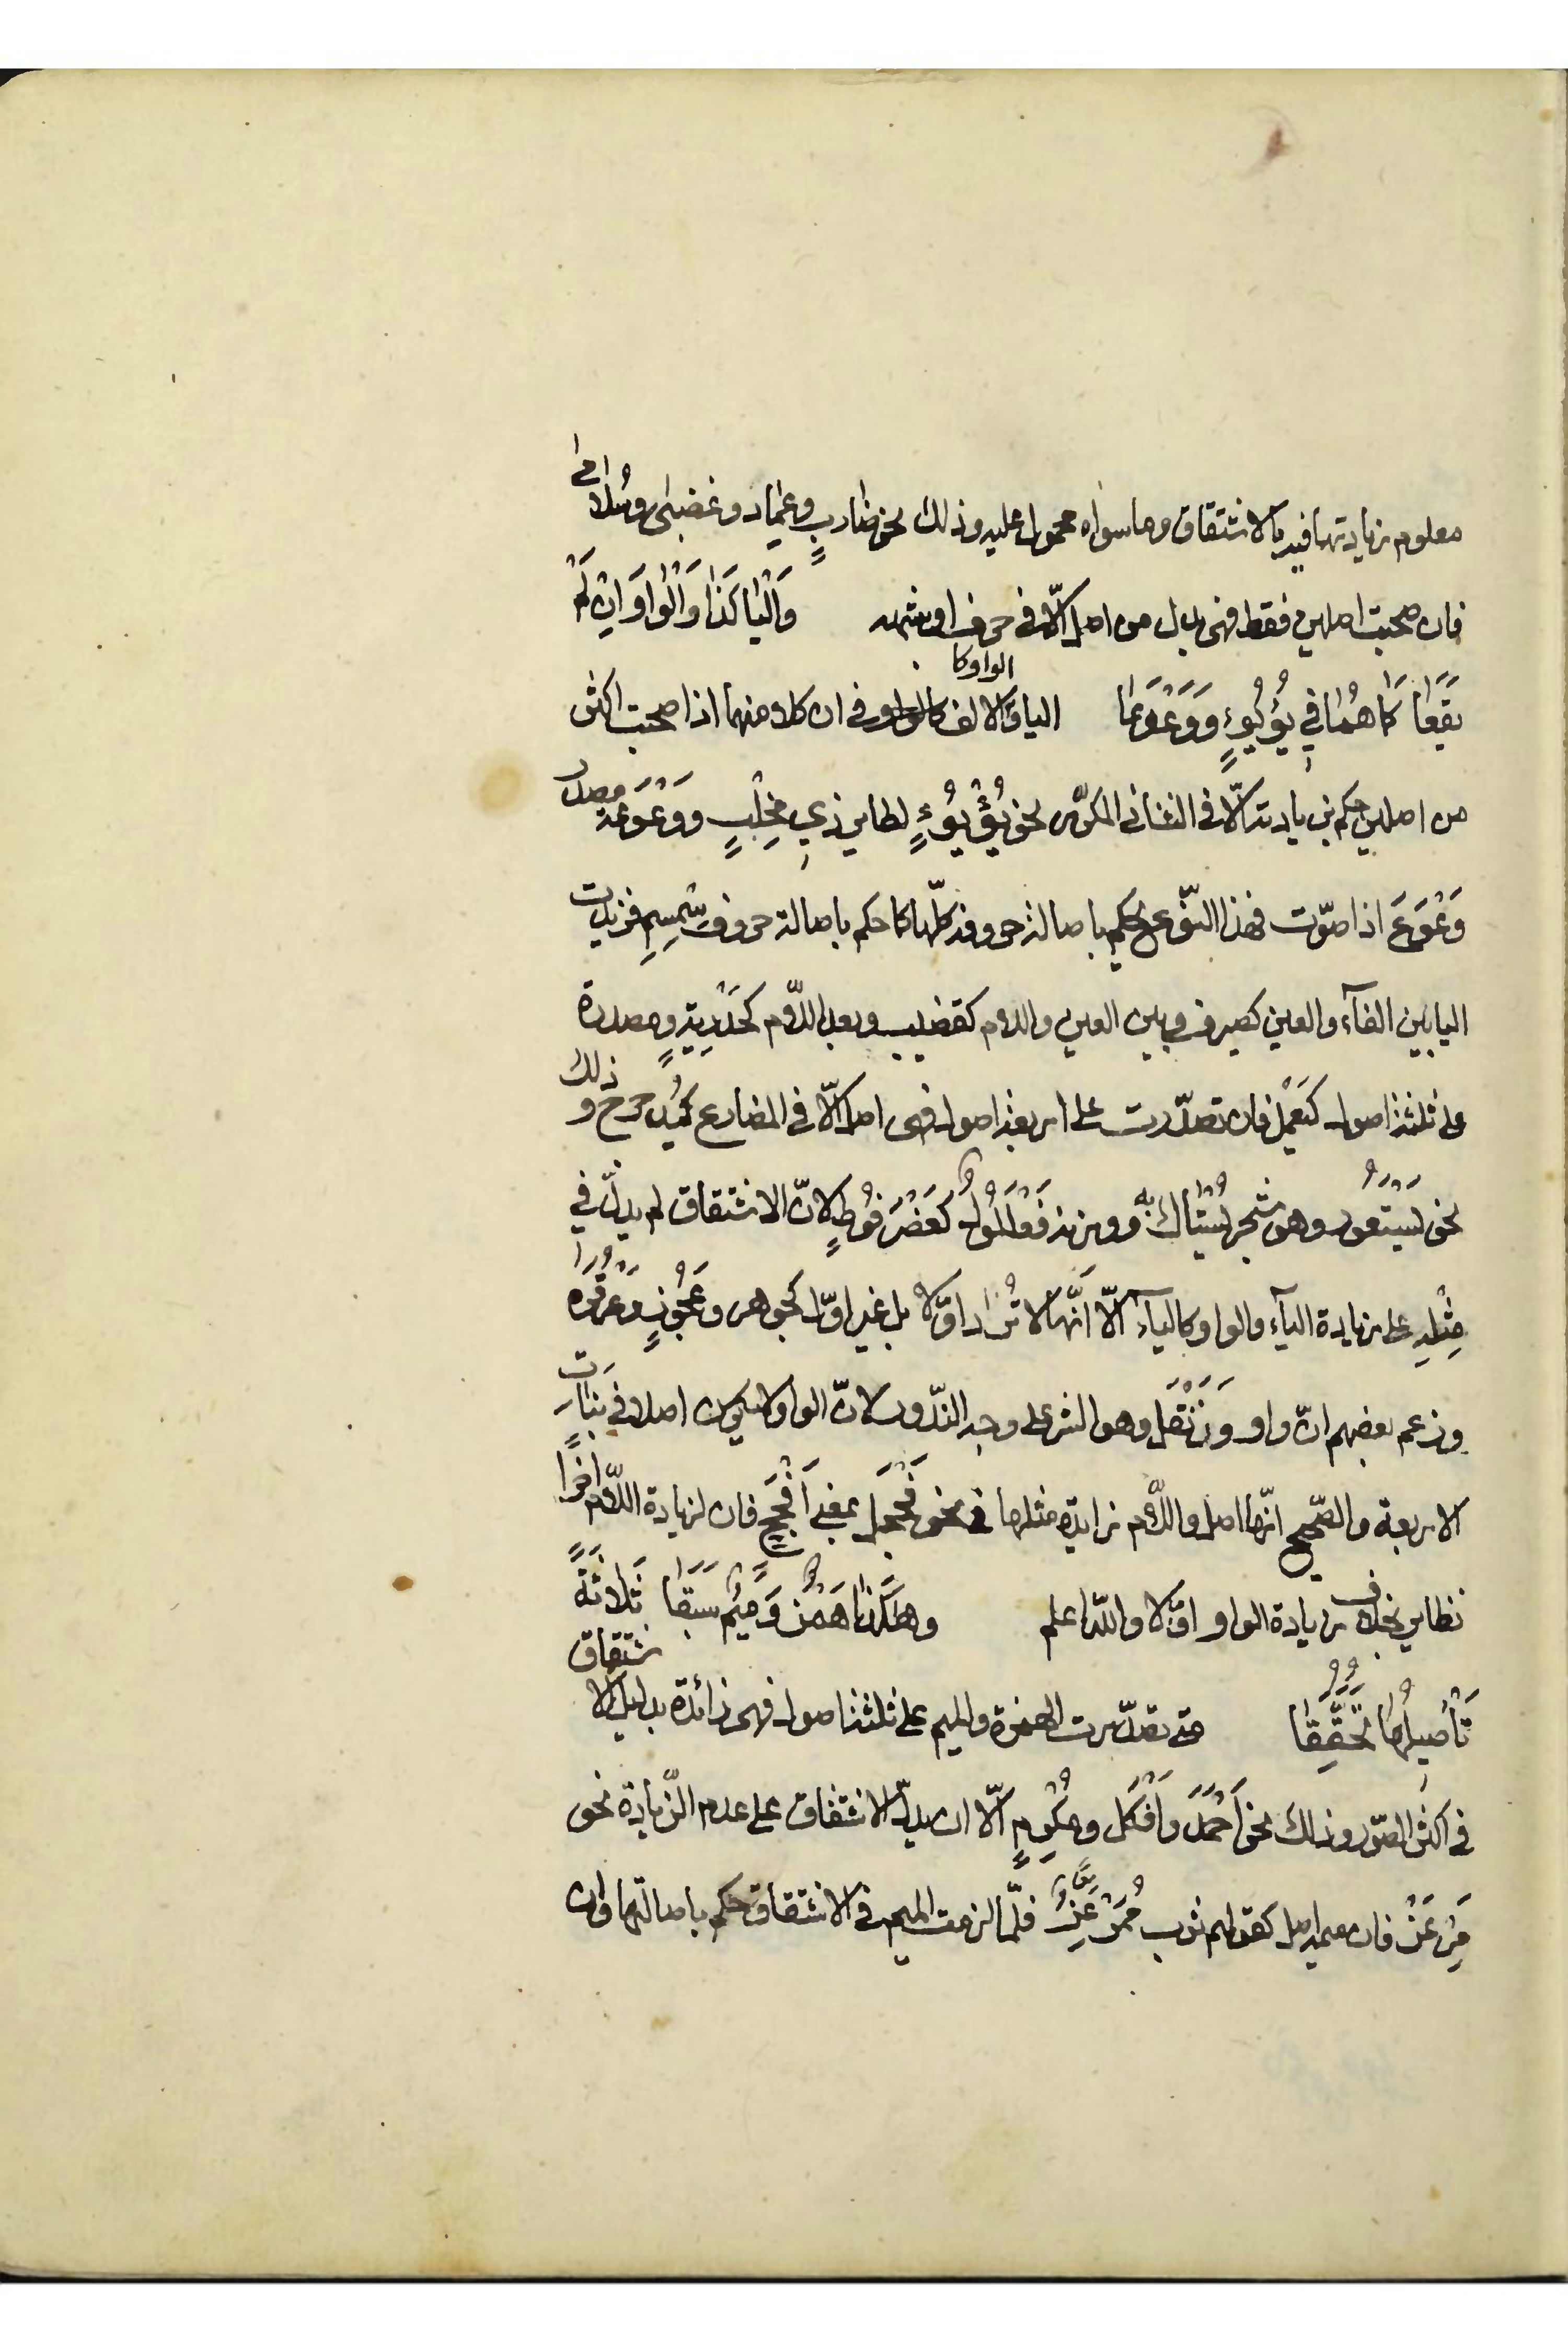 معلوم زيادتها فيه بالاشتقاق وما سواه محمول عليه وذلك نحو ضاربٍ وعماد وغضبى وسُلامى
فان صحبت اصلين فقط فهى بدل من اصل الّا فى حرف او شبهه وَالْيَا كَذَا وَالْوَاوَ اِنْ لَمْ
يَقَعَا كَمَا هُمَا فِي يُؤْيُؤٍ وَوَعْوَعَا الياء كالالف الواو كا فى ان كلا منهما اذا صحبت اكثر
من اصلين حكم بزيادته الّا فى الثنائى المكرّر نحو يُؤْيُؤٍ لطاير ذي مِخْلَبٍ ووَعْوَعَةٍ مصدر
وَعْوَعَ اذا صوّت فهذا النّوع يحكم باصالة حروفه كلّها كما حكم باصالة حروف سِمْسِمٍ فزيدت
اليا بين الفآء والعين كصيرف وبين العين واللام كقضيب وبعد اللّام كحِذْرِيَةٍ ومصدرة
على ثلثة اصول كيَعْمَل فان تصدّرت على اربعة اصول فهى اصل الّا فى المضارع كيُدحرج وذلك
نحو يَسْتَعُور وهو شجر يُسْتَاك به ووزنه فَعْلَلُولٌ كعَضْرَفُوطٍ لانّ الاشتقاق لم يدلّ في
مِثْلِهِ على زيادة اليآء والواو كاليآء الّا أنّها لا تُزاد اوّلا بل غير اوّل كجوهر وعَجُوزٍ وعَرْقُوَة
وزعم بعضهم انّ واو وَرَنْتَل وهو الشر على وجه النّدور لانّ الواو لا تكون اصلا فى بنات
الاربعة والصّحيح انّها اصل واللّام زايدة مثلها فى نحو فَحْجَل بمعنى أَفْحَج فان لزيادة اللّام اخرًا
نظاير بخلاف زيادة الواو اوّلا واللّه اعلم وَهٰكَذَا هَمْزٌ وَمِيْمٌ سَبَقَا ثَلَاثَةً
تَأْصِيلُهَا تُحُقِّقَا متى تصدّرت الهمزة والميم على ثلثة اصول فهى زائدة بدليل الاشتقاق
فى اكثر الصّور وذلك نحو أَحْمَدَ وَأَفْكَل ومُكْرِمٍ الّا ان يدلّ الاشتقاق على عدم الزّيادة نحو
مِرْعَزّ فان ميمه اصل كقولهم ثوب مُمَرْعَزٌ فلمّا لزمت الميم فى الاشتقاق حكم باصالتها وان